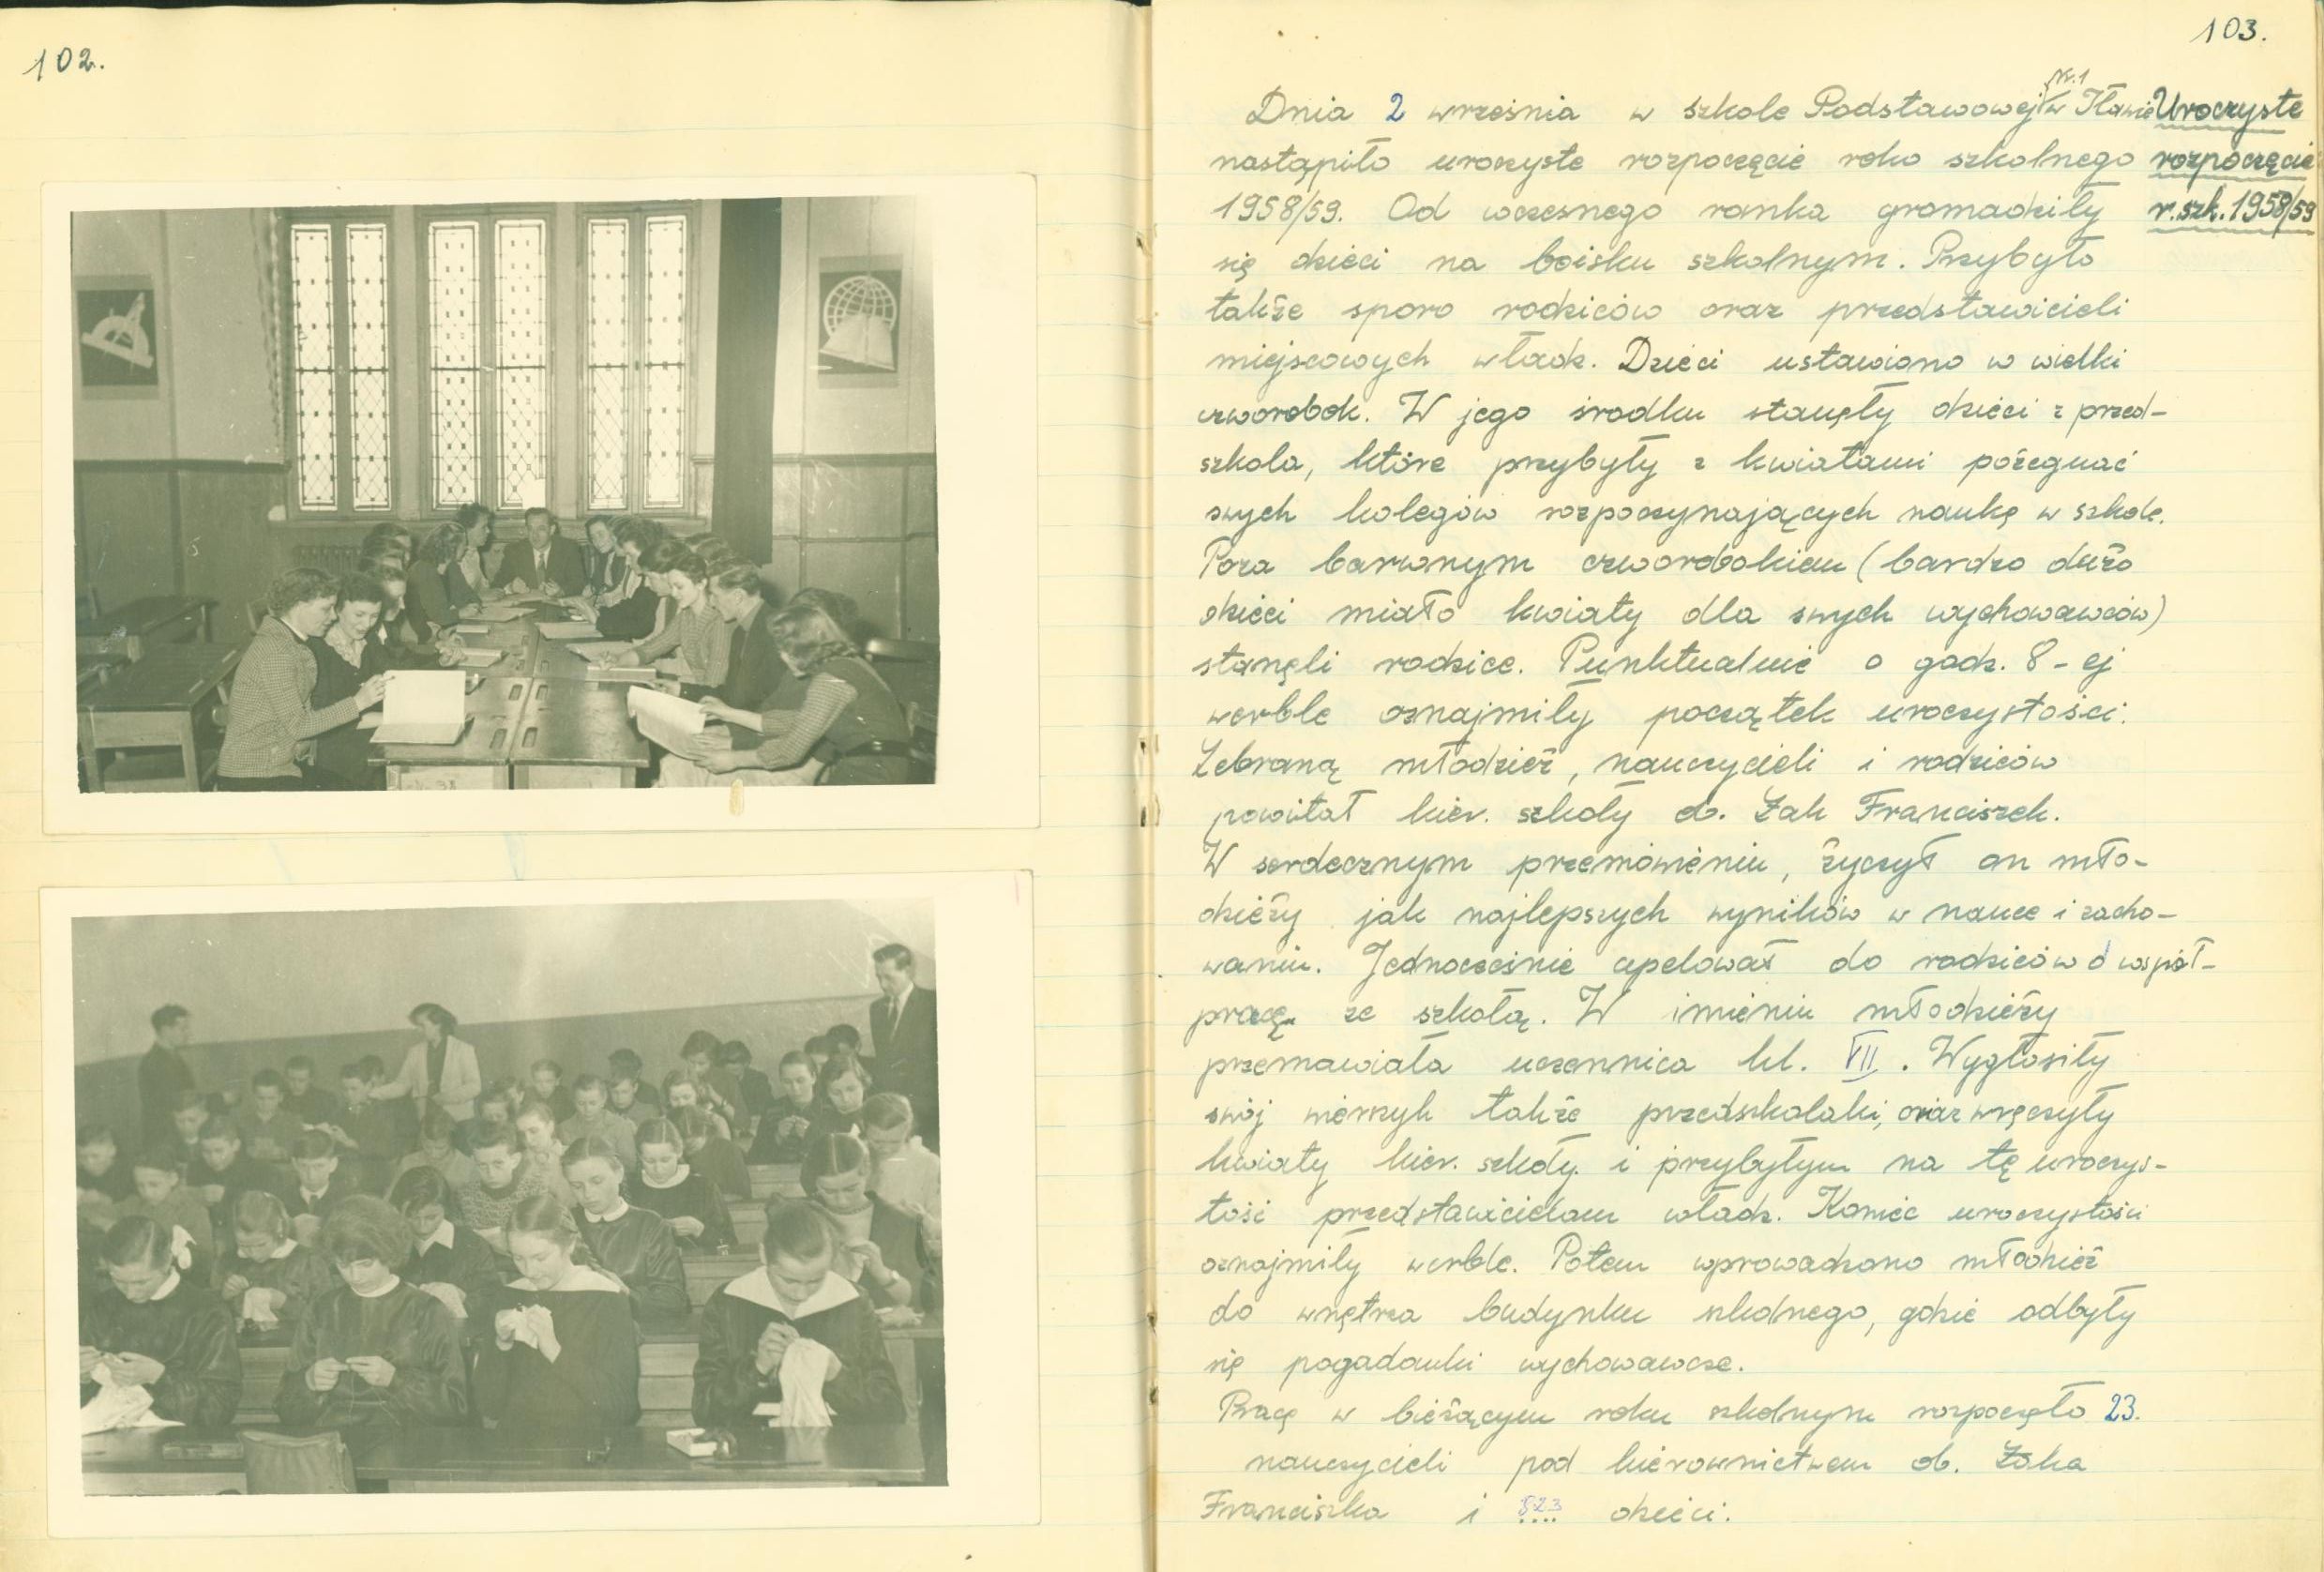 102.
103.
Dnia 2 września w szkole Podstawowej Nr. 1 w Iławie
nastąpiło uroczyste rozpoczęcie roku szkolnego
1958/59. Od wczesnego ranka gromadziły
się dzieci na boisku szkolnym. Przybyło
także sporo rodziców oraz przedstawicieli
miejscowych władz. Dzieci ustawiono w wielki
czworobok. W jego środku stanęły dzieci z przed-
szkola, które przybyły z kwiatami pożegnać
swych kolegów rozpoczynających naukę w szkole.
Poza barwnym czworobokiem (bardzo dużo
dzieci miało kwiaty dla swych wychowawców)
stanęli rodzice. Punktualnie o godz. 8-ej
werble oznajmiły początek uroczystości.
Zebraną młodzież, nauczycieli i rodziców
powitał kier. szkoły ob. Żak Franciszek.
W serdecznym przemówieniu, życzył on mło-
dzieży jak najlepszych wyników w nauce i zacho-
waniu. Jednocześnie apelował do rodziców o współ-
pracę ze szkołą. W imieniu młodzieży
przemawiała uczennica kl. VII. Wygłosiły
swój wierszyk także przedszkolaki, oraz wręczyły
kwiaty kier. szkoły i przybyłym na tę uroczys-
tość przedstawicielom władz. Koniec uroczystości
oznajmiły werble. Potem wprowadzono młodzież
do wnętrza budynku szkolnego, gdzie odbyły
się pogadanki wychowawcze.
Pracę w bieżącym roku szkolnym rozpoczęło 23.
nauczycieli pod kierownictwem ob. Żaka
Franciszka i 823 dzieci.
Uroczyste
rozpoczęcie
r. szk. 1958/59